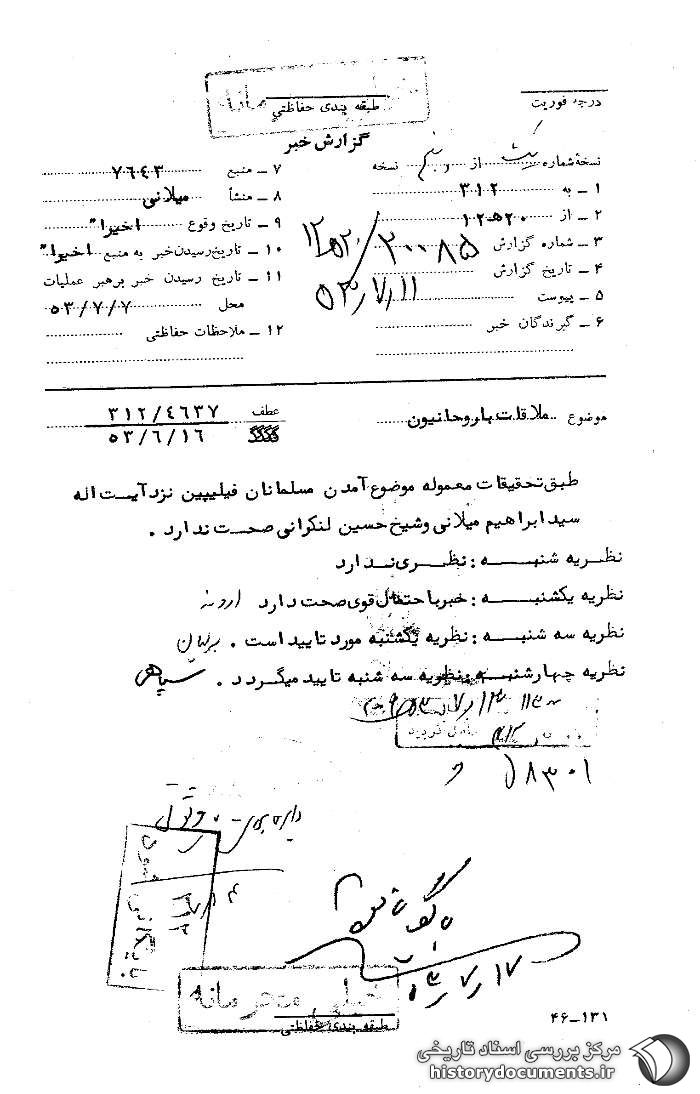 خیلی محرمانه
طبقه بندی حفاظتی
درجه فوریت
گزارش خبر
نسخهٔ شماره یک از پنج نسخه
۱ ــ به ۳۱۲
۲ ــ از ۱۲ﻫ۲۰
۳ ــ شماره گزارش ۲۰۰۸۵/۱۲ﻫ۲۰
۴ ــ تاریخ گزارش ۵۳/۷/۱۱
۵ ــ پیوست
۶ ــ گیرندگان خبر
۷ ــ منبع ۷۶۴۳
۸ ــ منشأ میلانی
۹ ــ تاریخ وقوع اخیرا"
۱۰ ــ تاریخ رسیدن خبر به منبع اخیرا"
۱۱ ــ تاریخ رسیدن خبر برهبر عملیات
محل ۵۳/۷/۷
۱۲ ــ ملاحظات حفاظتی
موضوع ملاقات با روحانیون
عطف ۳۱۲/۴۶۳۷
۵۳/۶/۱۶
طبق تحقیقات معموله موضوع آمدن مسلمانان فیلیپین نزد آیت اله
سید ابراهیم میلانی و شیخ حسین لنکرانی صحت ندارد .
نظریه شنبه : نظری ندارد
نظریه یکشنبه : خبر با احتمال قوی صحت دارد
نظریه سه شنبه : نظریه یکشنبه مورد تایید است .
نظریه چهارشنبه : نظریه سه شنبه تایید میگردد . سپاهی
۸۳۰۱
بایگانی شود
۳۱۲
۱۷/۷/۵۳
خیلی محرمانه
طبقه بندی حفاظتی
۴۶-۱۳۱
مرکز بررسی اسناد تاریخی
historydocuments.ir